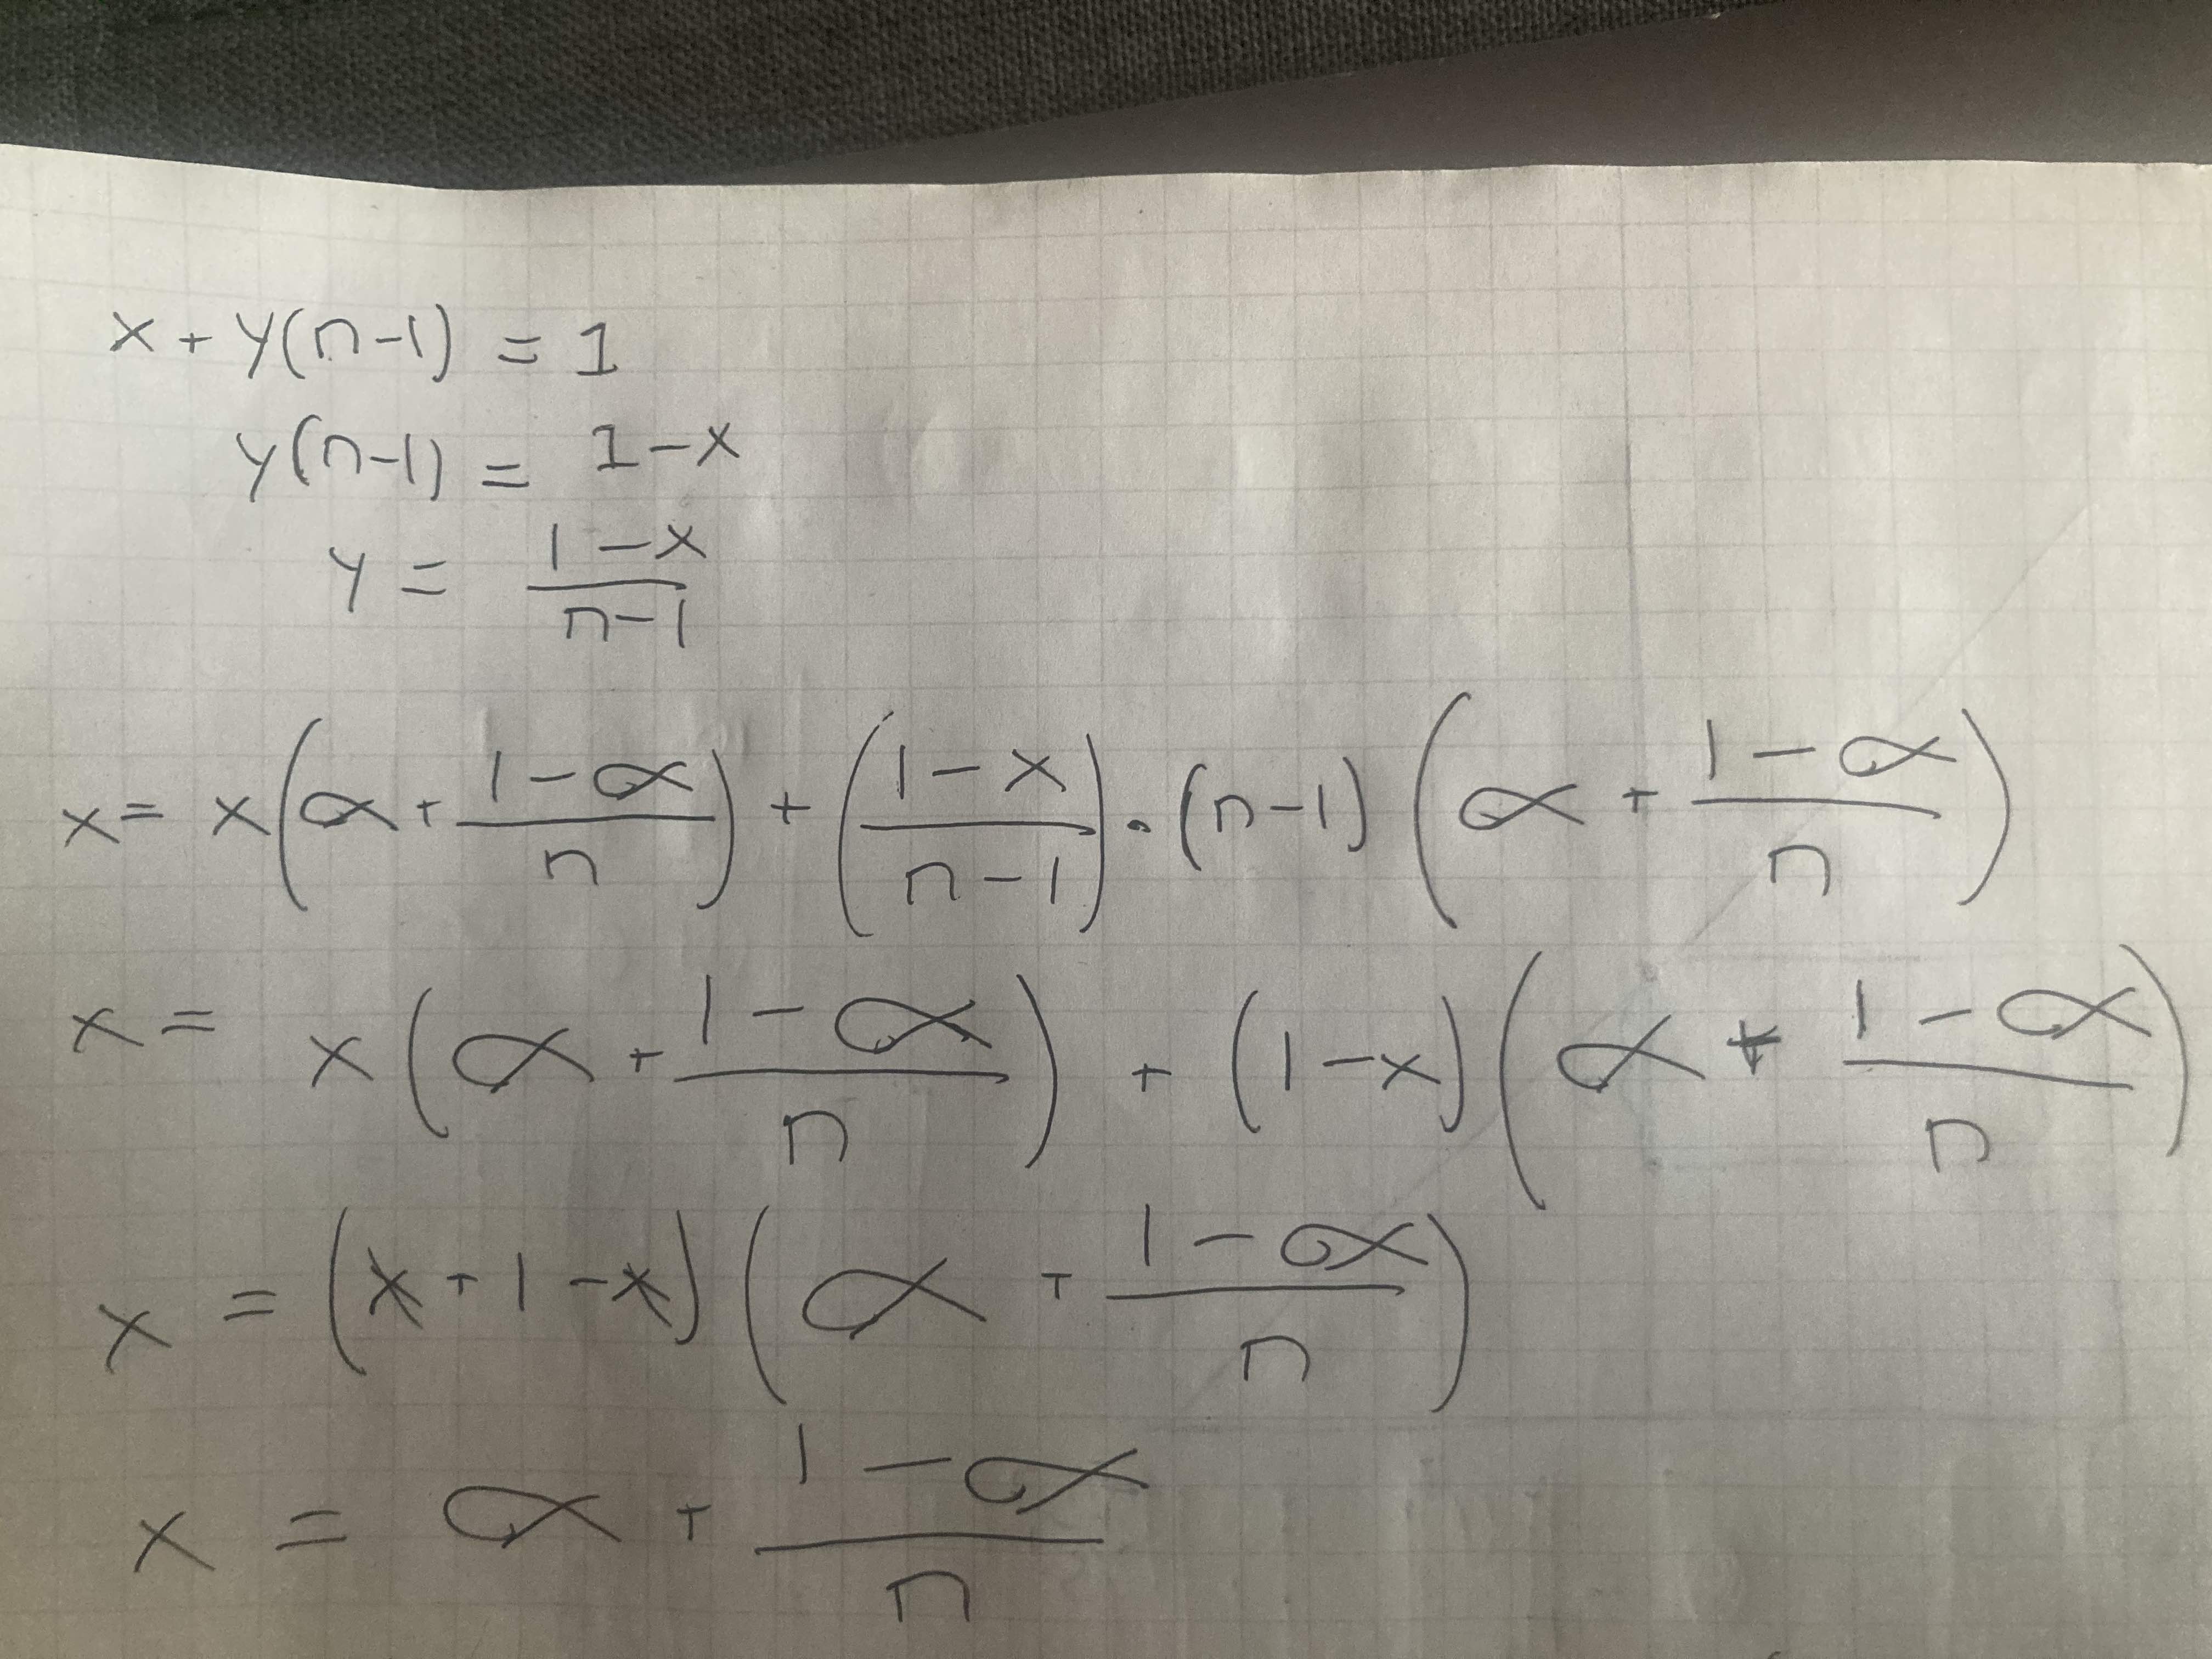 x + y(n-1) = 1
y(n-1) = 1-x
y = \frac{1-x}{n-1}
x = x(α + \frac{1-α}{n}) + (\frac{1-x}{n-1}) · (n-1) (α + \frac{1-α}{n})
x = x(α + \frac{1-α}{n}) + (1-x)(α + \frac{1-α}{n})
x = (x + 1 - x)(α + \frac{1-α}{n})
x = α + \frac{1-α}{n}